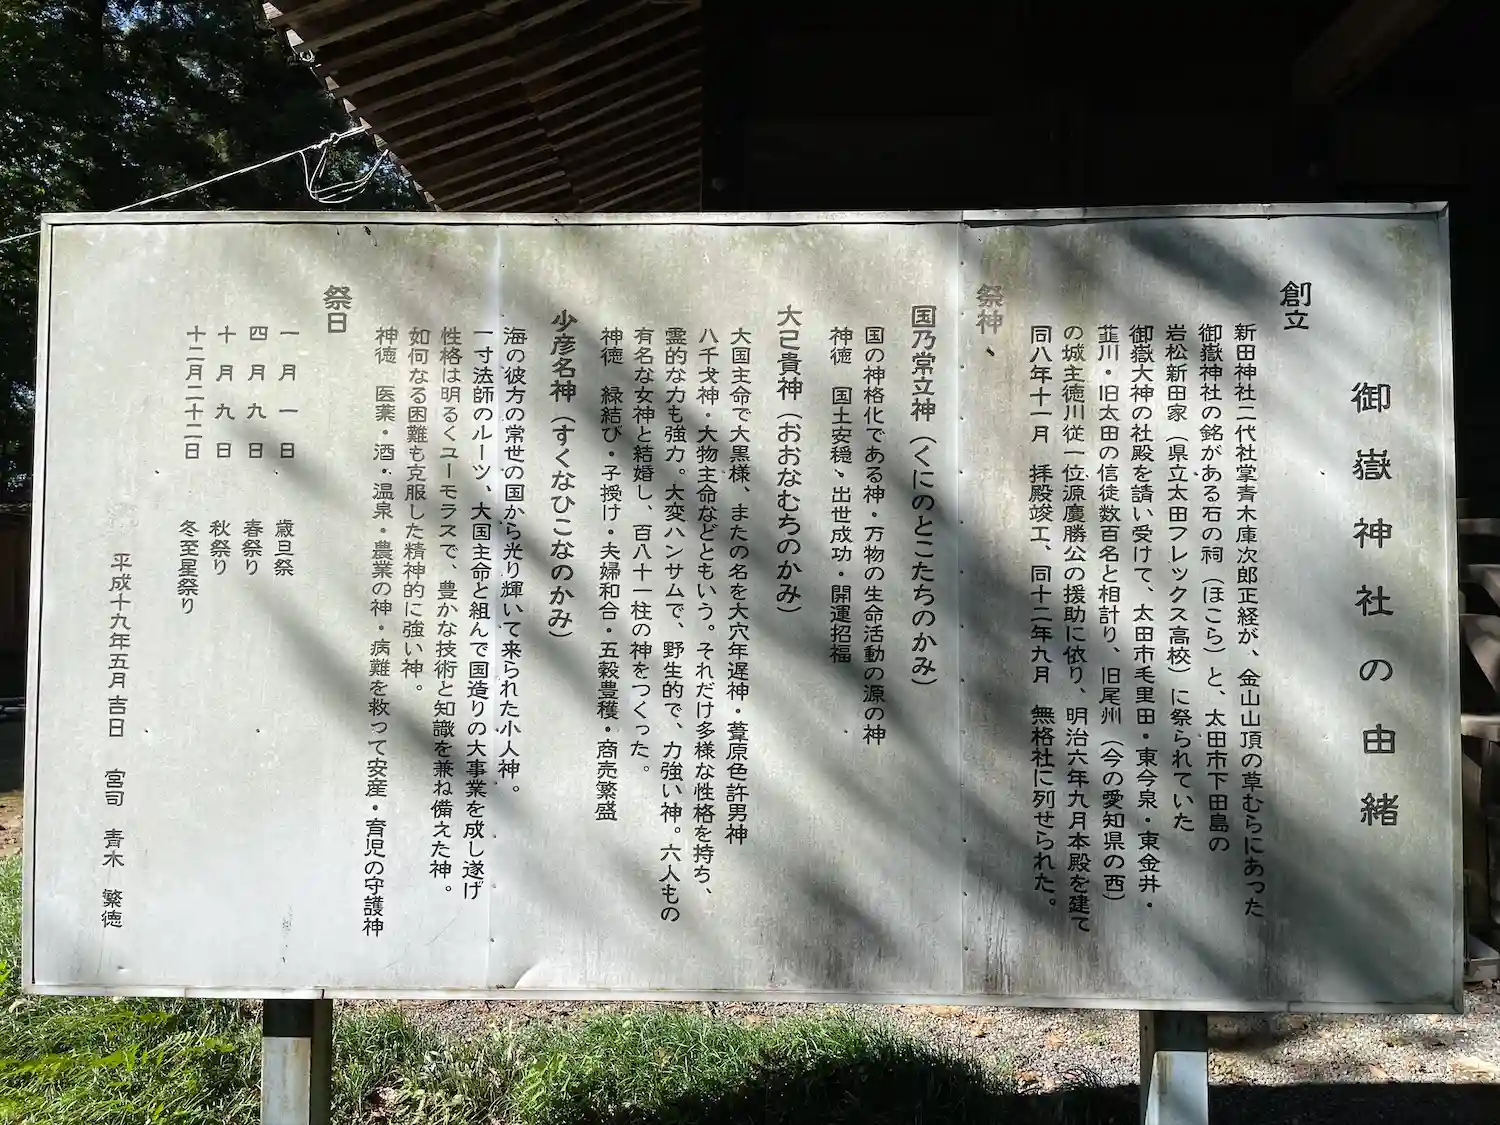 御嶽神社の由緒
創立
新田神社二代社掌青木庫次郎正経が、金山山頂の草むらにあった
御嶽神社の銘がある石の祠（ほこら）と、太田市下田島の
岩松新田家（県立太田フレックス高校）に祭られていた
御嶽大神の社殿を請い受けて、太田市毛里田・東今泉・東金井・
韮川・旧太田の信徒数百名と相計り、旧尾州（今の愛知県の西）
の城主徳川従一位源慶勝公の援助に依り、明治六年九月本殿を建て
同八年十一月　拝殿竣工、同十二年九月　無格社に列せられた。
祭神、
国乃常立神（くにのとこたちのかみ）
国の神格化である神・万物の生命活動の源の神
神徳　国土安穏、出世成功・開運招福
大己貴神（おおなむちのかみ）
大国主命で大黒様、またの名を大穴牟遅神・葦原色許男神
八千戈神・大物主命などともいう。それだけ多様な性格を持ち、
霊的な力も強力。大変ハンサムで、野生的で、力強い神。六人もの
有名な女神と結婚し、百八十一柱の神をつくった。
神徳　縁結び・子授け・夫婦和合・五穀豊穫・商売繁盛
少彦名神（すくなひこなのかみ）
海の彼方の常世の国から光り輝いて来られた小人神。
一寸法師のルーツ、大国主命と組んで国造りの大事業を成し遂げ
性格は明るくユーモラスで、豊かな技術と知識を兼ね備えた神。
如何なる困難も克服した精神的に強い神。
神徳　医薬・酒・温泉・農業の神・病難を救って安産・育児の守護神
祭日
一月一日　歳旦祭
四月九日　春祭り
十月九日　秋祭り
十二月二十二日　冬至星祭り
平成十九年五月吉日　宮司　青木　繁徳